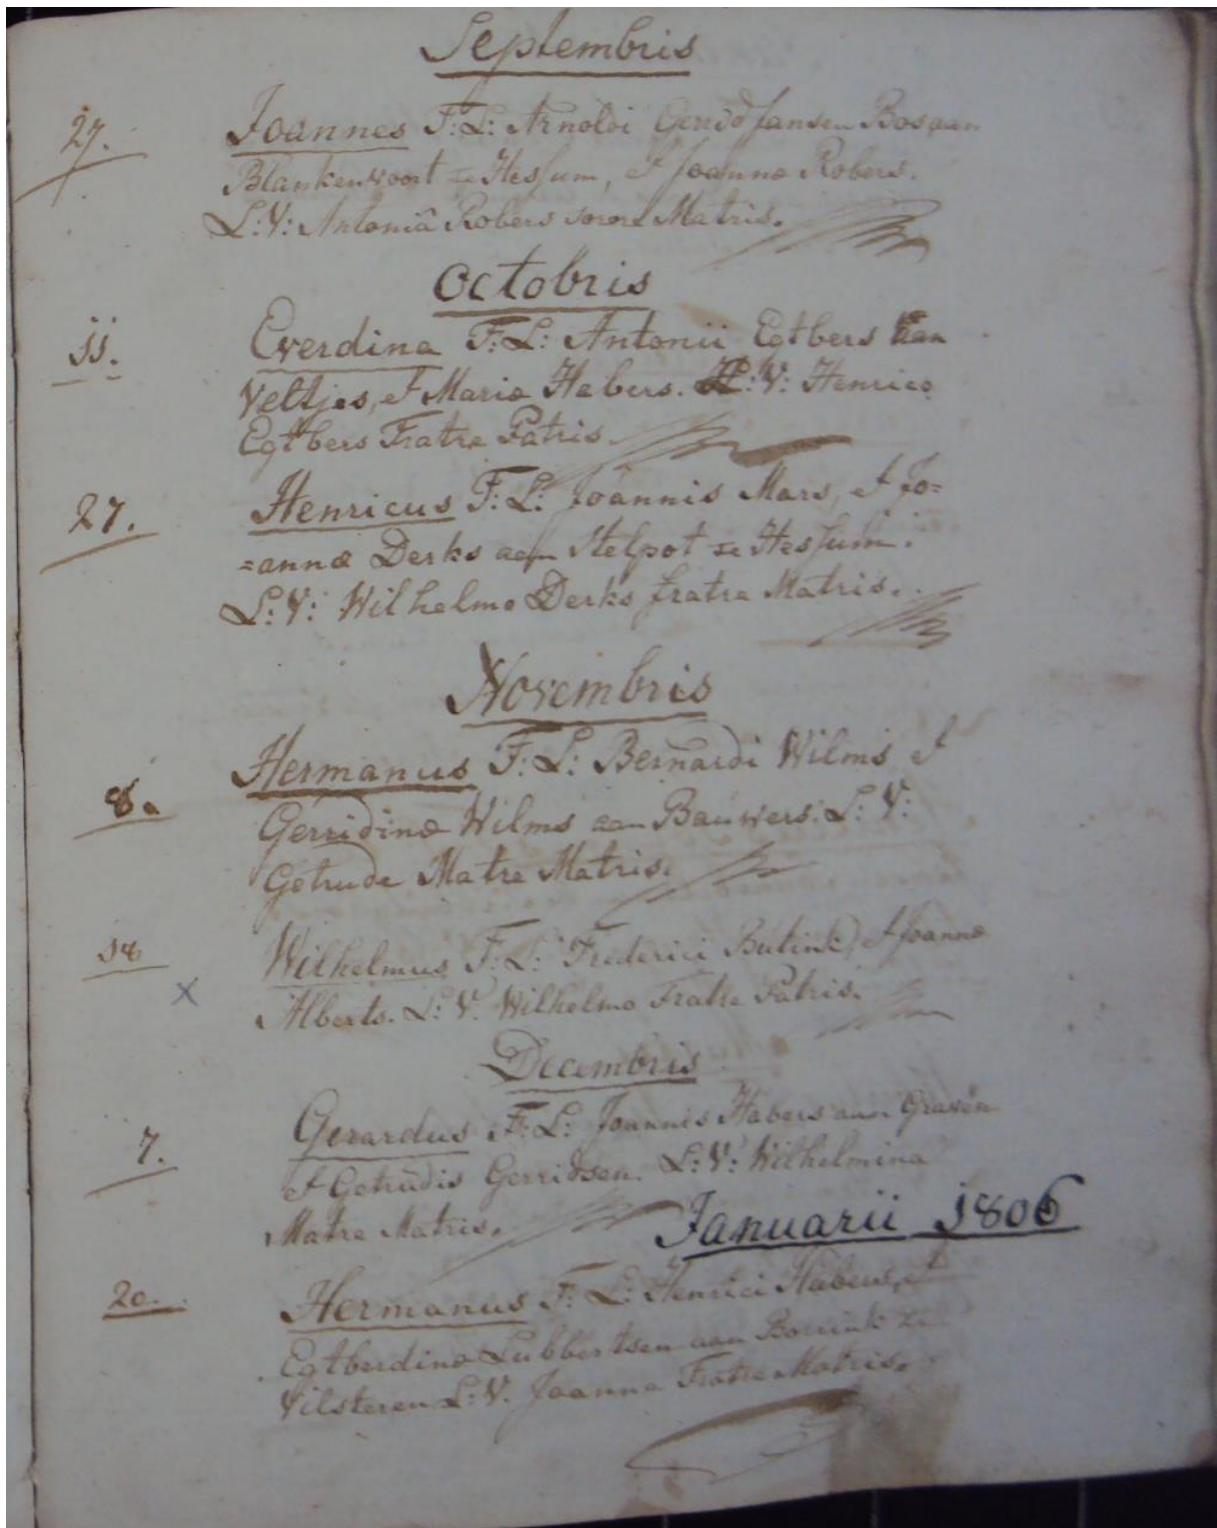 Septembris
27. Joannes F: L: Arnoldi Gerrid Jansen Bos aan
Blankenvoort in Hessum, et Joannæ Robers.
L: V: Antoniâ Robers sorore Matris.
Octobris
11. Everdina F: L: Antonii Egtbers aan
Veltjes, et Mariæ Habers. L: V: Henrico
Egtbers Fratre Patris
27. Henricus F: L: Joannis Mars, et Jo=
=annæ Derks aan Stelpot in Hessum.
L: V: Wilhelmo Derks fratre Matris.
Novembris
8. Hermanus F: L: Bernardi Wilms et
Gerridinæ Wilms aan Bauwers. L: V:
Getrude Matre Matris.
18 Wilhelmus F: L: Frederici Butink, et Joannæ
x
Alberts. L: V. Wilhelmo Fratre Patris.
Decembris
7. Gerardus F: L: Joannis Habers aan Graven
et Getrudis Gerridsen. L: V: Wilhelmina
Matre Matris.
Januarii 1806
20. Hermanus F: L: Henrici Habers, et
Egtberdinæ Lubbertsen aan Borrink
Vilsteren L: V. Joanne Fratre Matris.